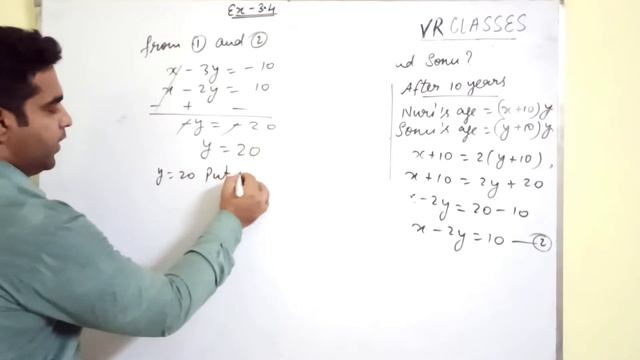 Ex-3.4
from ① and ②
x - 3y = -10
x - 2y = 10
- + -
-y = -20
y = 20
y=20 Put
VR CLASSES
nd Sonu?
After 10 years
Nuri's age = (x+10)y
Sonu's age = (y+10)y
x+10 = 2(y+10),
x+10 = 2y + 20
-2y = 20 - 10
x - 2y = 10 — ②